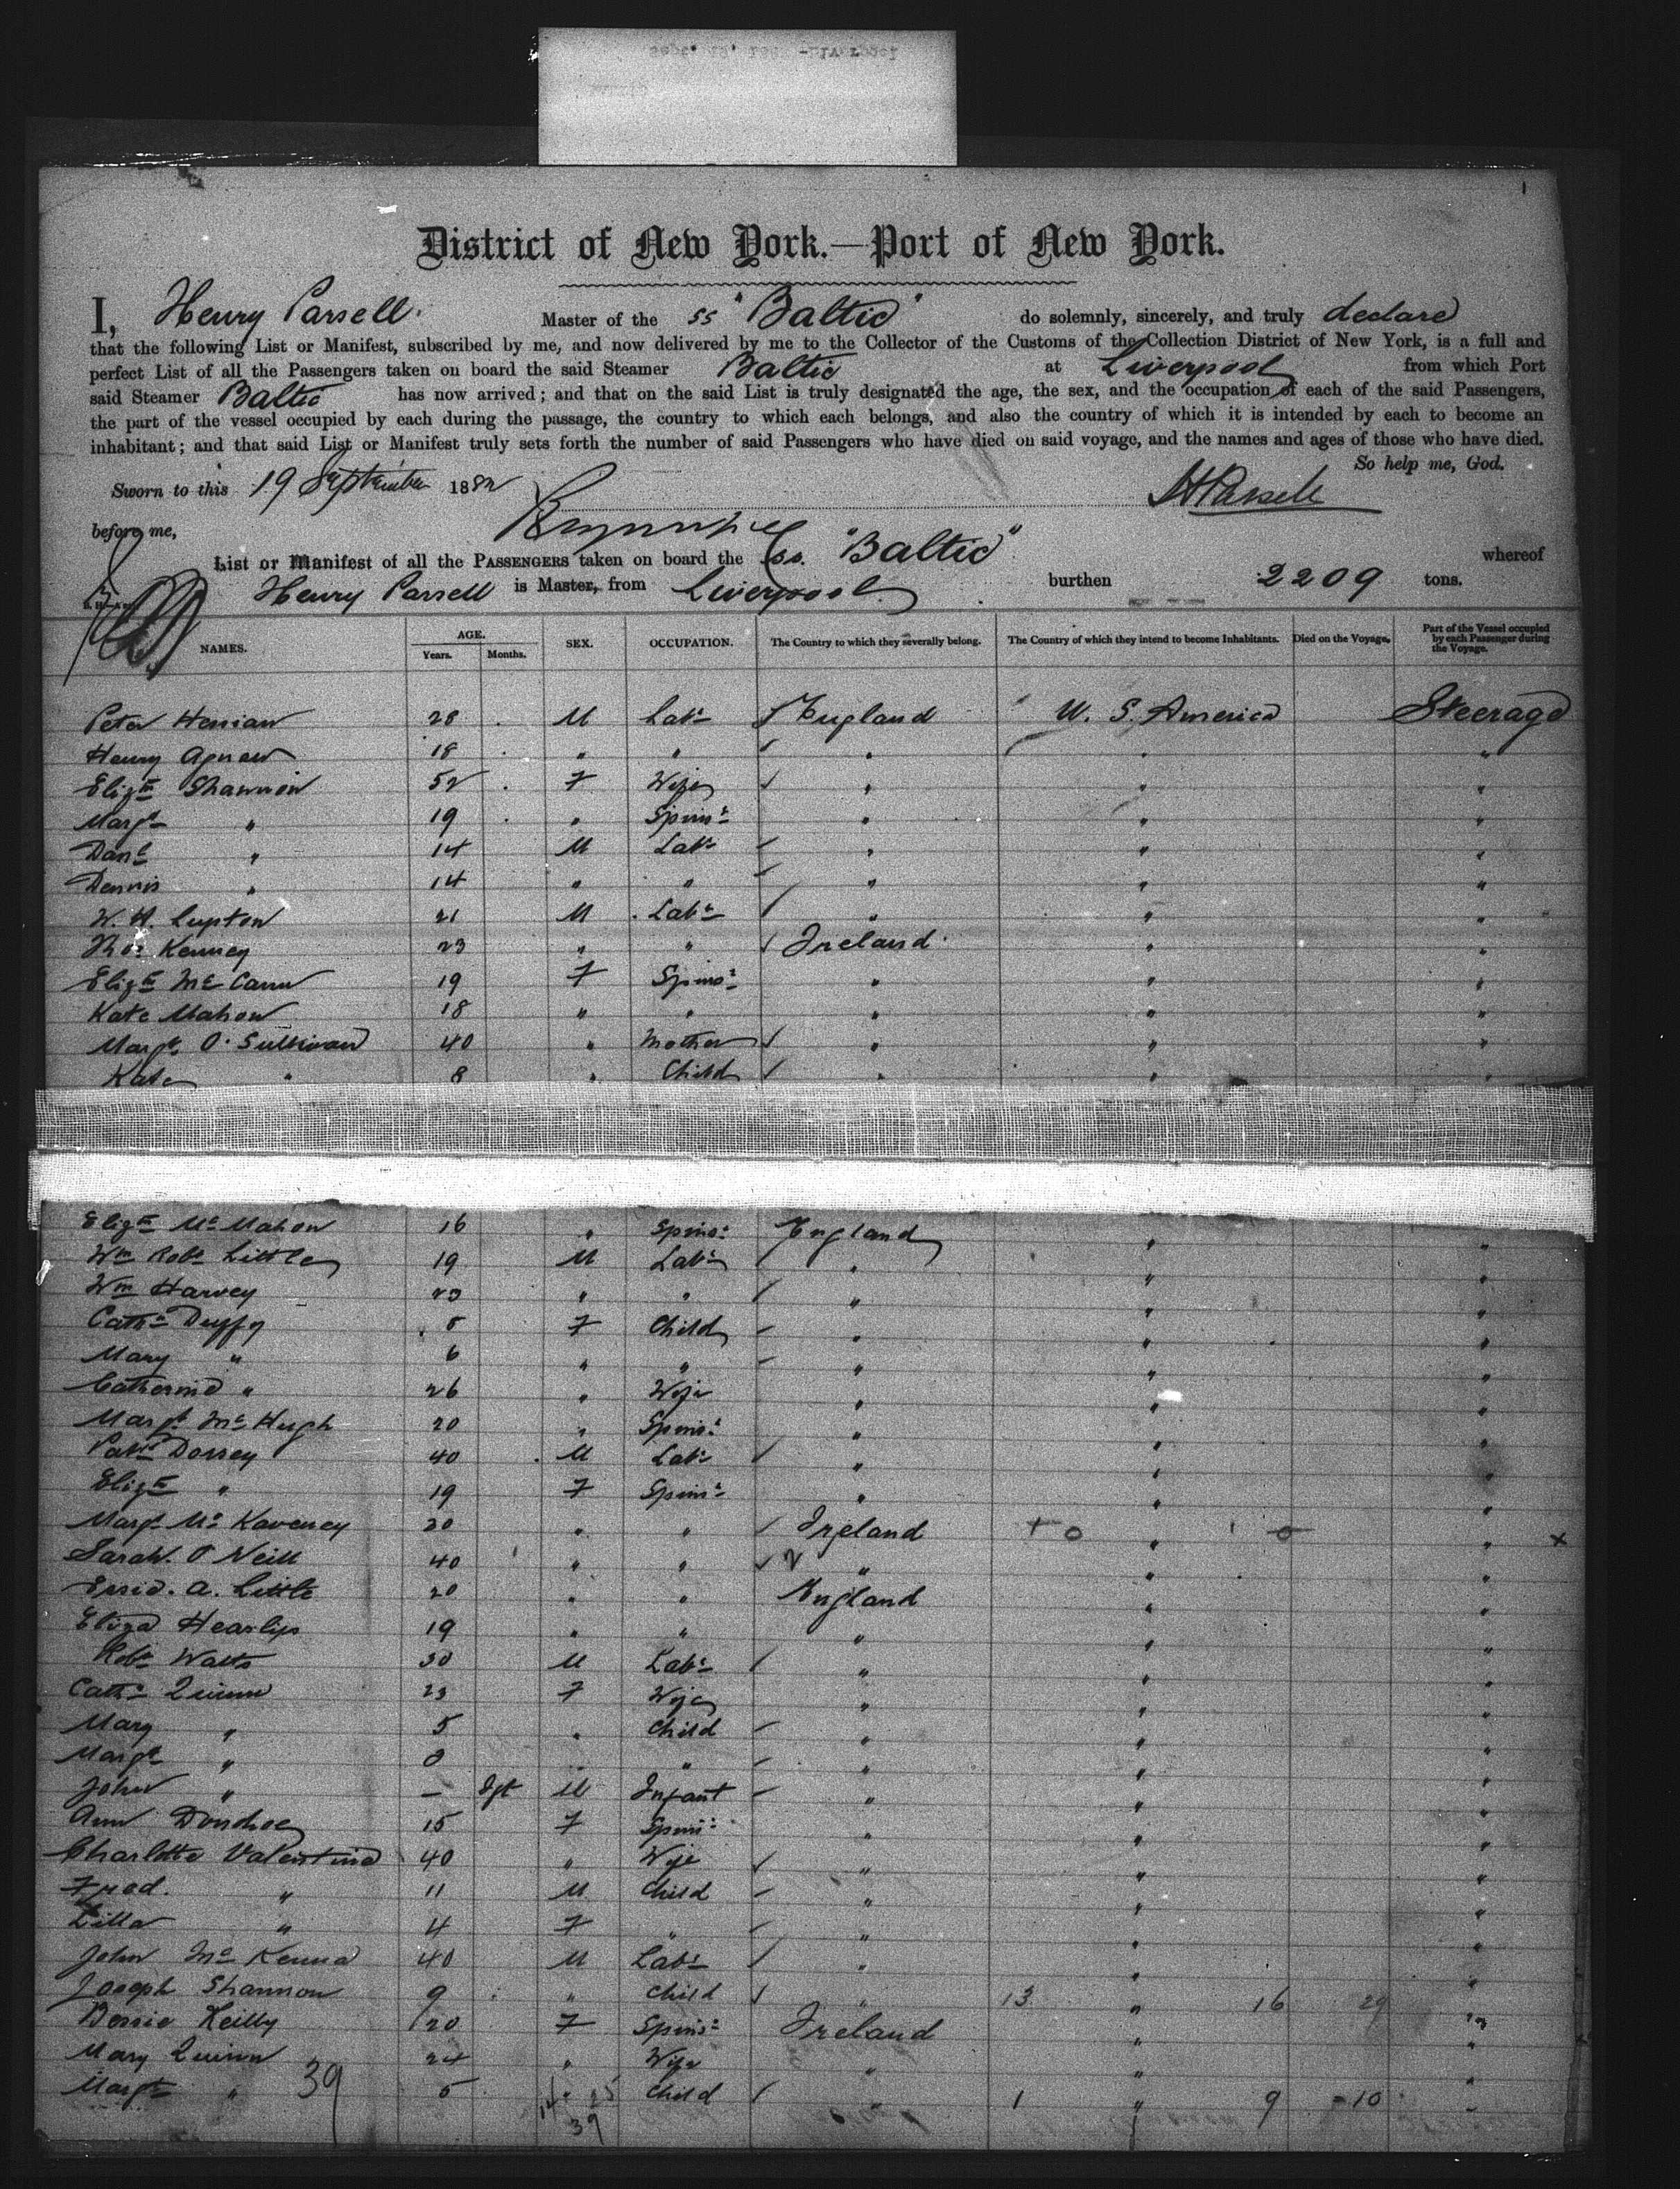 District of New York.—Port of New York.
I, Henry Parsell Master of the SS "Baltic" do solemnly, sincerely, and truly declare
that the following List or Manifest, subscribed by me, and now delivered by me to the Collector of the Customs of the Collection District of New York, is a full and
perfect List of all the Passengers taken on board the said Steamer Baltic at Liverpool from which Port
said Steamer Baltic has now arrived; and that on the said List is truly designated the age, the sex, and the occupation of each of the said Passengers,
the part of the vessel occupied by each during the passage, the country to which each belongs, and also the country of which it is intended by each to become an
inhabitant; and that said List or Manifest truly sets forth the number of said Passengers who have died on said voyage, and the names and ages of those who have died.
So help me, God.
Sworn to this 19 September 1882
HParsell
before me,
List or Manifest of all the PASSENGERS taken on board the ss. "Baltic" whereof
Henry Parsell is Master, from Liverpool burthen 2209 tons.
NAMES. AGE. Years. Months. SEX. OCCUPATION. The Country to which they severally belong. The Country of which they intend to become Inhabitants. Died on the Voyage. Part of the Vessel occupied by each Passenger during the Voyage.
Peter 28 M Labr England U. S. America Steerage
Henry Agnew 18 " " " " "
Elizth Shannon 52 F Wife " " "
Margt " 19 " Spinsr " " "
Danl " 14 M Labr " " "
Dennis " 14 " " " " "
W. H. Lupton 21 M Labr " " "
Thos Kenney 23 " " Ireland " "
Elizth Mc Cann 19 F Spinsr " " "
Kate Mahon 18 " " " " "
Margt O'Sullivan 40 " Mother " " "
Kate " 8 " Child " " "
Elizth Mc Mahon 16 " Spinsr England " "
Wm Robt Little 19 M Labr " " "
Wm Harvey 23 " " " " "
Cathe Duffy 8 F Child " " "
Mary " 6 " " " " "
Catherine " 26 " Wife " " "
Margt Mc Hugh 20 " Spinsr " " "
Patk Dorsey 40 M Labr " " "
Elizth " 19 F Spinsr " " "
Margt Mc Kaveney 20 " " Ireland " "
Sarah O Neill 40 " " " " "
A. Little 20 " " England " "
Eliza Heaslip 19 " " " " "
Robt Watts 30 M Labr " " "
Cathe Quinn 23 F Wife " " "
Mary " 5 " Child " " "
Margt " 3 " " " " "
John " — Ift M Infant " " "
Ann Donohoe 15 F Spinsr " " "
Charlotte Valentine 40 " Wife " " "
Fred. " 11 M Child " " "
Lilla " 4 F " " " "
John Mc Kenna 40 M Labr " " "
Joseph Shannon 9 " Child " 13 " 16 29 "
Bessie Reilly 20 F Spinsr Ireland " "
Mary Quinn 24 " Wife " " "
Margt " 5 " Child " 1 " 9 -10 "
39
14 25
39